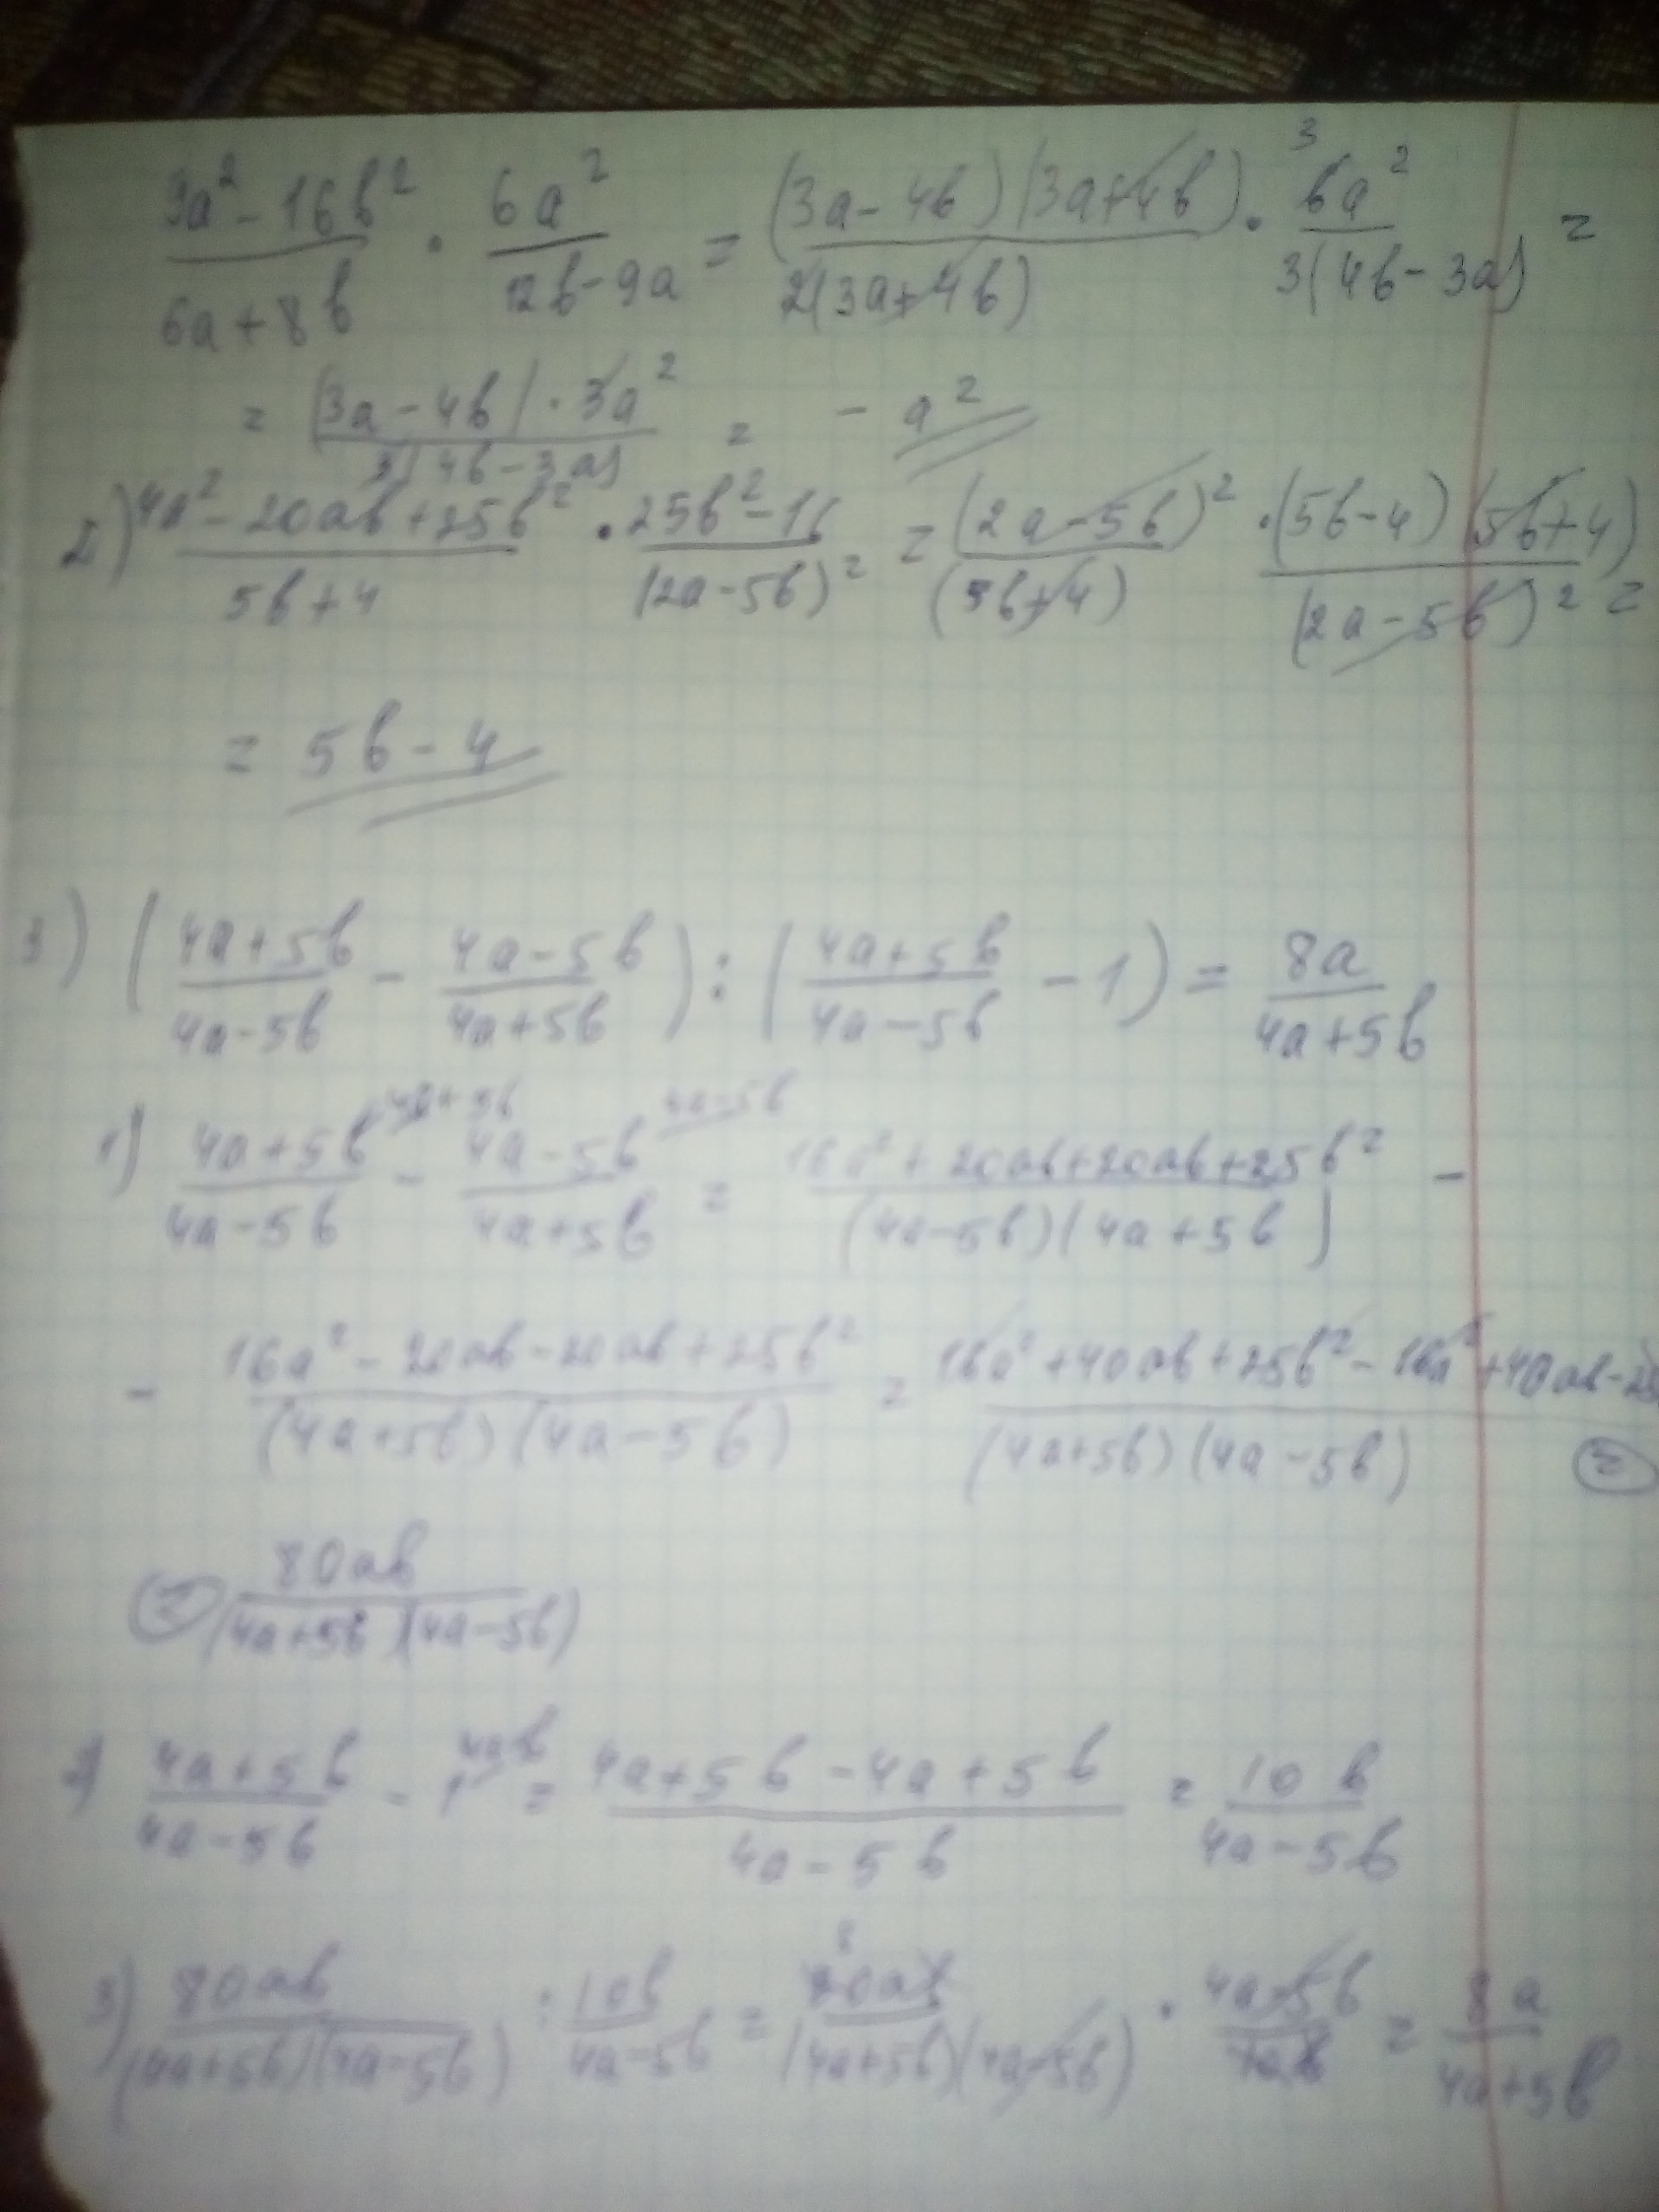 3a² - 16b² / 6a + 8b · 6a² / 12b - 9a = (3a - 4b)(3a + 4b) / 2(3a + 4b) · 6a² 3 / 3(4b - 3a) =
= (3a - 4b) · 3a² / 3(4b - 3a) = - a²
2) 4a² - 20ab + 25b² / 5b + 4 · 25b² - 16 / (2a - 5b)² = (2a - 5b)² / (5b + 4) · (5b - 4)(5b + 4) / (2a - 5b)² =
= 5b - 4
3) (4a + 5b / 4a - 5b - 4a - 5b / 4a + 5b) : (4a + 5b / 4a - 5b - 1) = 8a / 4a + 5b
1) 4a + 5b / 4a - 5b 4a + 5b - 4a - 5b / 4a + 5b 4a - 5b = 16a² + 20ab + 20ab + 25b² / (4a - 5b)(4a + 5b) -
- 16a² - 20ab - 20ab + 25b² / (4a + 5b)(4a - 5b) = 16a² + 40ab + 25b² - 16a² + 40ab - 25 / (4a + 5b)(4a - 5b) =
= 80ab / (4a + 5b)(4a - 5b)
2) 4a + 5b / 4a - 5b - 1 = 4a + 5b - 4a + 5b / 4a - 5b = 10b / 4a - 5b
3) 80ab / (4a + 5b)(4a - 5b) : 10b / 4a - 5b = 8 80ab / (4a + 5b)(4a - 5b) · 4a - 5b / 10b = 8a / 4a + 5b